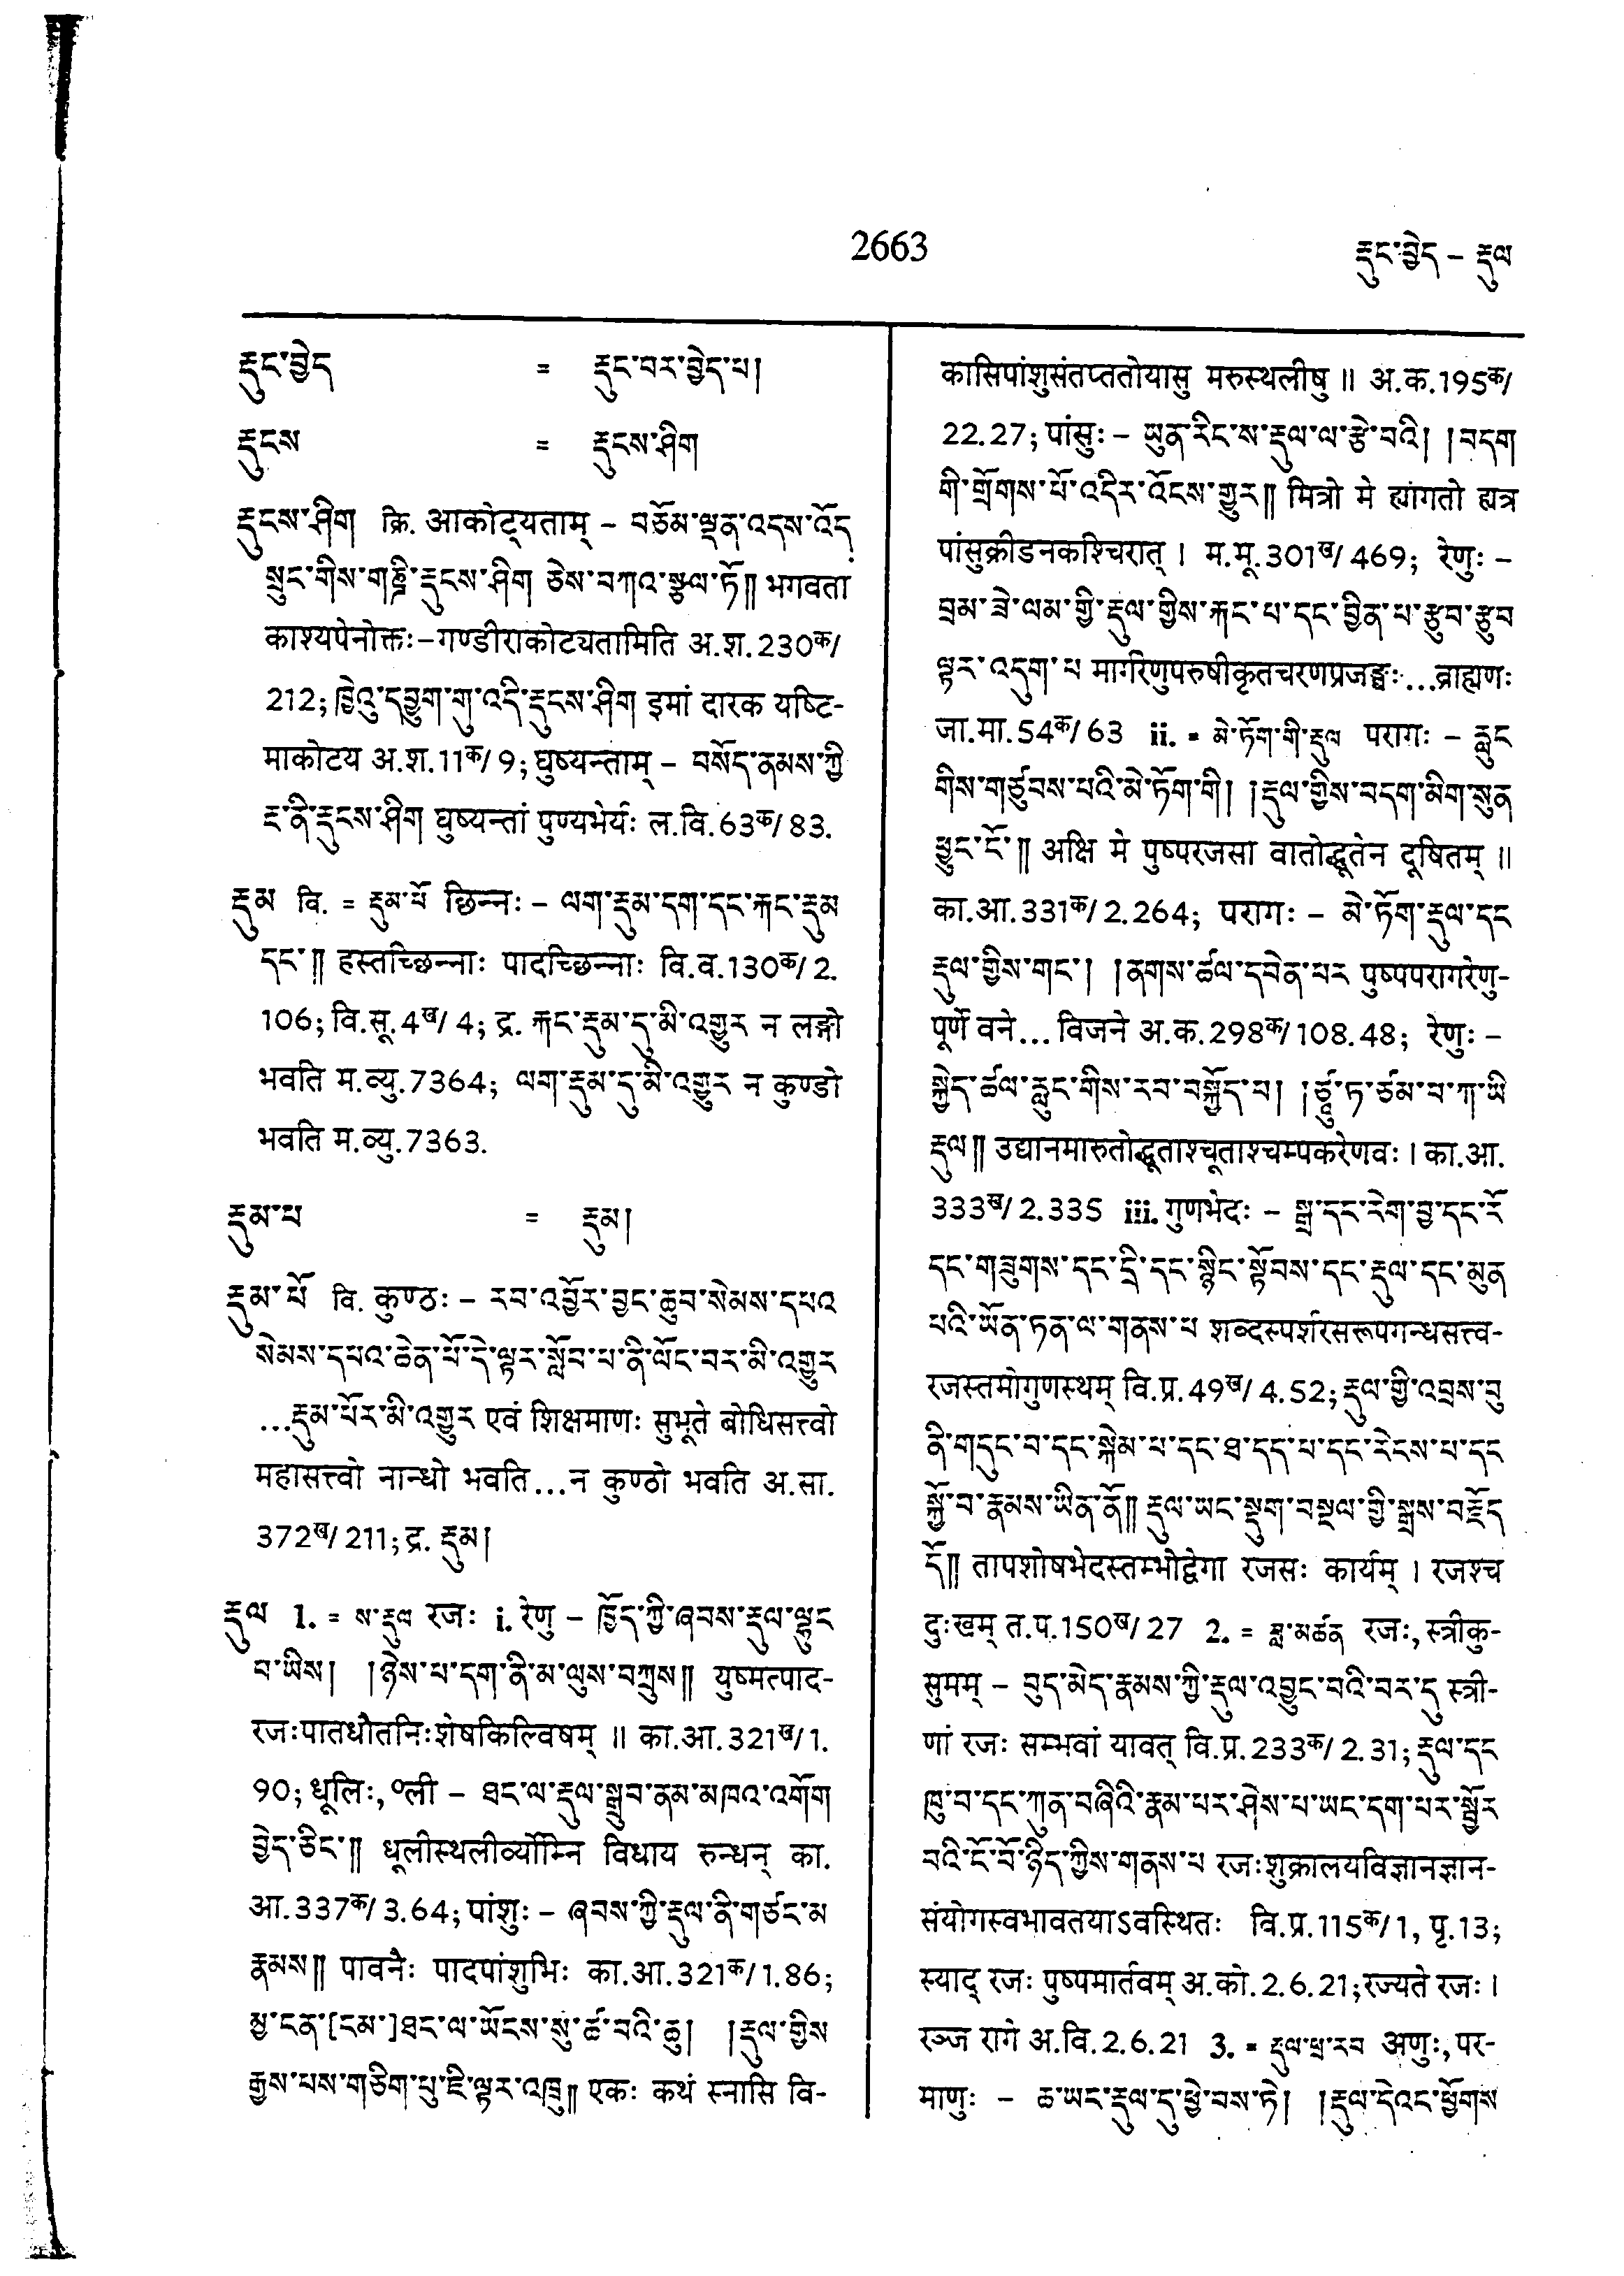 2663
རྡུང་བྱེད – རྡུལ
རྡུང་བྱེད = རྡུང་བར་བྱེད་པ།
རྡུངས = རྡུངས་ཤིག
རྡུངས་ཤིག क्रि. आकोट्यताम् – བཅོམ་ལྡན་འདས་འོད་
སྲུང་གིས་གཎྜི་རྡུངས་ཤིག ཅེས་བཀའ་སྩལ་ཏོ༎ भगवता
काश्यपेनोक्तः–गण्डीराकोट्यतामिति अ.श.230क/
212; ཁྱེའུ་དབྱུག་གུ་འདི་རྡུངས་ཤིག इमां दारक यष्टि-
माकोटय अ.श.11क/9; घुष्यन्ताम् – བསོད་ནམས་ཀྱི
རྔ་ནི་རྡུངས་ཤིག घुष्यन्तां पुण्यभेर्यः ल.वि.63क/83.
རྡུམ वि. = རྡུམ་པོ छिन्नः – ལག་རྡུམ་དག་དང་རྐང་རྡུམ
དང་༎ हस्तच्छिन्नाः पादच्छिन्नाः वि.व.130क/2.
106; वि.सू.4ख/4; द्र. རྐང་རྡུམ་དུ་མི་འགྱུར न लङ्गो
भवति म.व्यु.7364; ལག་རྡུམ་དུ་མི་འགྱུར न कुण्डो
भवति म.व्यु.7363.
རྡུམ་པ = རྡུམ།
རྡུམ་པོ वि. कुण्ठः – རབ་འབྱོར་བྱང་ཆུབ་སེམས་དཔའ
སེམས་དཔའ་ཆེན་པོ་དེ་ལྟར་སློབ་པ་ནི་ལོང་བར་མི་འགྱུར
...རྡུམ་པོར་མི་འགྱུར एवं शिक्षमाणः सुभूते बोधिसत्त्वो
महासत्त्वो नान्धो भवति...न कुण्ठो भवति अ.सा.
372ख/211; द्र. རྡུམ།
རྡུལ 1. = ས་རྡུལ रजः i. रेणु – ཁྱོད་ཀྱི་ཞབས་རྡུལ་ལྷུང
བ་ཡིས། །ཉེས་པ་དག་ནི་མ་ལུས་བཀྲུས༎ युष्मत्पाद-
रजःपातधौतनिःशेषकिल्विषम् ॥ का.आ.321ख/1.
90; धूलिः, ०ली – ཐང་ལ་རྡུལ་སྒྲུབ་ནམ་མཁའ་འགོག
བྱེད་ཅིང་༎ धूलीस्थलीर्व्योम्नि विधाय रुन्धन् का.
आ.337क/3.64; पांशुः – ཞབས་ཀྱི་རྡུལ་ནི་གཙང་མ
རྣམས༎ पावनैः पादपांशुभिः का.आ.321क/1.86;
མྱ་ངན་[ངམ་]ཐང་ལ་ཡོངས་སུ་ཚ་བའི་ཆུ། །རྡུལ་གྱིས
རྒྱས་པས་གཅིག་པུ་ཇི་ལྟར་འཁྲུ༎ एकः कथं स्नासि वि-
कासिपांशुसंतप्ततोयासु मरुस्थलीषु ॥ अ.क.195क/
22.27; पांसुः – ཡུན་རིང་ས་རྡུལ་ལ་རྩེ་བའི། །བདག
གི་གྲོགས་པོ་འདིར་འོངས་གྱུར༎ मित्रो मे ह्यांगतो ह्यत्र
पांसुक्रीडनकश्चिरात् । म.मू.301ख/469; रेणुः –
བྲམ་ཟེ་ལམ་གྱི་རྡུལ་གྱིས་རྐང་པ་དང་བྱིན་པ་རྩུབ་རྩུབ
ལྟར་འདུག་པ मार्गरेणुपरुषीकृतचरणप्रजङ्घः...ब्राह्मणः
जा.मा.54क/63 ii. = མེ་ཏོག་གི་རྡུལ परागः – རླུང
གིས་གཙུབས་པའི་མེ་ཏོག་གི། །རྡུལ་གྱིས་བདག་མིག་སུན
ཕྱུང་ངོ་༎ अक्षि मे पुष्परजसा वातोद्धूतेन दूषितम् ॥
का.आ.331क/2.264; परागः – མེ་ཏོག་རྡུལ་དང
རྡུལ་གྱིས་གང་། །ནགས་ཚལ་དབེན་པར पुष्पपरागरेणु-
पूर्णे वने... विजने अ.क.298क/108.48; रेणुः –
སྐྱེད་ཚལ་རླུང་གིས་རབ་བསྐྱོད་པ། །ཙཱུ་ཏ་ཙམ་པ་ཀ་ཡི
རྡུལ༎ उद्यानमारुतोद्धूताश्चूताश्चम्पकरेणवः । का.आ.
333ख/2.335 iii. गुणभेदः – སྒྲ་དང་རེག་བྱ་དང་རོ
དང་གཟུགས་དང་དྲི་དང་སྙིང་སྟོབས་དང་རྡུལ་དང་མུན
པའི་ཡོན་ཏན་ལ་གནས་པ शब्दस्पर्शरसरूपगन्धसत्त्व-
रजस्तमोगुणस्थम् वि.प्र.49ख/4.52; རྡུལ་གྱི་འབྲས་བུ
ནི་གདུང་བ་དང་སྐེམ་པ་དང་ཐ་དད་པ་དང་རེངས་པ་དང
སྐྱོ་བ་རྣམས་ཡིན་ནོ༎ རྡུལ་ཡང་སྡུག་བསྔལ་གྱི་སྒྲས་བརྗོད
དོ༎ तापशोषभेदस्तम्भोद्वेगा रजसः कार्यम् । रजश्च
दुःखम् त.प.150ख/27 2. = ཟླ་མཚན रजः, स्त्रीकु-
सुमम् – བུད་མེད་རྣམས་ཀྱི་རྡུལ་འབྱུང་བའི་བར་དུ स्त्री-
णां रजः सम्भवां यावत् वि.प्र.233क/2.31; རྡུལ་དང
ཁུ་བ་དང་ཀུན་བཞིའི་རྣམ་པར་ཤེས་པ་ཡང་དག་པར་སྦྱོར
བའི་ངོ་བོ་ཉིད་ཀྱིས་གནས་པ रजःशुक्रालयविज्ञानज्ञान-
संयोगस्वभावतयाऽवस्थितः वि.प्र.115क/1, पृ.13;
स्याद् रजः पुष्पमार्तवम् अ.को.2.6.21; रज्यते रजः ।
रञ्ज रागे अ.वि.2.6.21 3. = རྡུལ་ཕྲ་རབ अणुः, पर-
माणुः – ཆ་ཡང་རྡུལ་དུ་ཕྱེ་བས་ཏེ། །རྡུལ་དེའང་ཕྱོགས